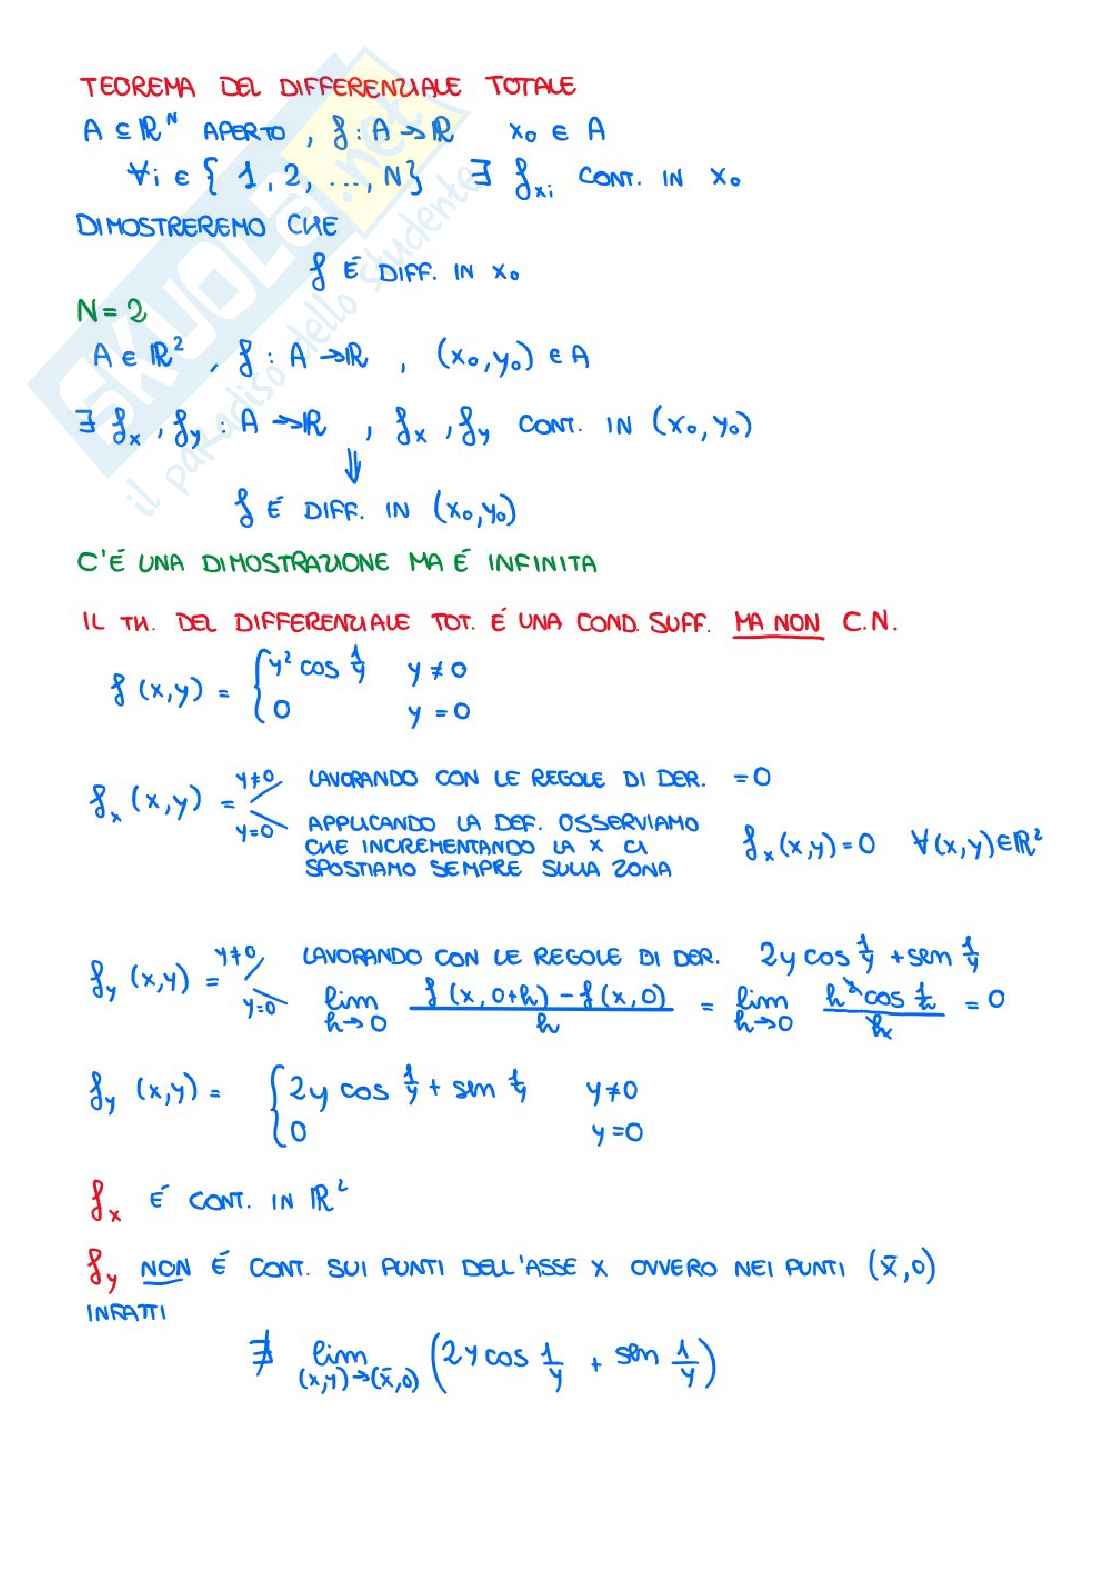 TEOREMA DEL DIFFERENZIALE TOTALE
A ⊆ ℝᴺ APERTO , f : A → ℝ x₀ ∈ A
∀i ∈ { 1, 2, ..., N} ∃ f_xi CONT. IN x₀
DIMOSTREREMO CHE
f É DIFF. IN x₀
N = 2
A ∈ ℝ² , f : A → ℝ , (x₀, y₀) ∈ A
∃ f_x , f_y : A → ℝ , f_x , f_y CONT. IN (x₀, y₀)
⇓
f É DIFF. IN (x₀, y₀)
C'É UNA DIMOSTRAZIONE MA É INFINITA
IL TH. DEL DIFFERENZIALE TOT. É UNA COND. SUFF. MA NON C.N.
f (x,y) = { y² cos 1/y y ≠ 0
0 y = 0
f_x (x,y) = y≠0 LAVORANDO CON LE REGOLE DI DER. = 0
y=0 APPLICANDO LA DEF. OSSERVIAMO
CHE INCREMENTANDO LA X CI f_x (x,y) = 0 ∀(x,y) ∈ ℝ²
SPOSTIAMO SEMPRE SULLA ZONA
f_y (x,y) = y≠0 LAVORANDO CON LE REGOLE DI DER. 2y cos 1/y + sen 1/y
y=0 lim h→0 f(x, 0+h) - f(x, 0) / h = lim h→0 h² cos 1/h / h = 0
f_y (x,y) = { 2y cos 1/y + sen 1/y y ≠ 0
0 y = 0
f_x É CONT. IN ℝ²
f_y NON É CONT. SUI PUNTI DELL'ASSE X OVVERO NEI PUNTI (x̄, 0)
INFATTI
∄ lim (x,y)→(x̄,0) (2y cos 1/y + sen 1/y)
SKUOLA.net
il paradiso dello studente